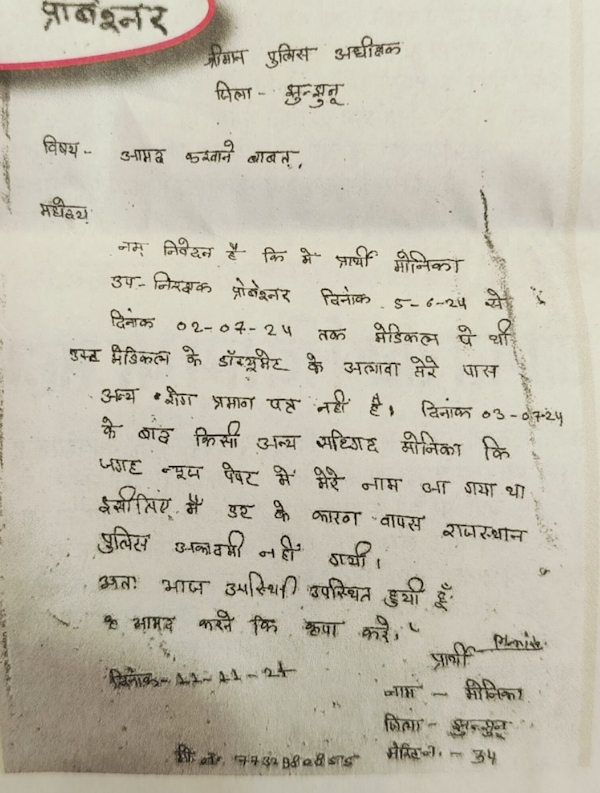 प्रोबेश्नर
श्रीमान पुलिस अधीक्षक
जिला - झुन्झुनू
विषय - आमद करवाने बाबत्,
महोदय
नम्र निवेदन है कि मे प्रार्थी मोनिका
उप-निरक्षक प्रोबेश्नर दिनांक 5-6-24 से
दिनांक 02-07-24 तक मेडिकल पे थी
मेडिकल के डॉक्यूमेंट के अलावा मेरे पास
अन्य रोग प्रमाण पत्र नहीं है। दिनांक 03-07-24
के बाद किसी अन्य मोनिका कि
जगह न्यूज पेपर में मेरे नाम आ गया था
इसीलिए मैं डर के कारण वापस राजस्थान
पुलिस अकादमी नहीं गयी।
अतः आज उपस्थिती उपस्थित हुयी हूँ
आमद करने कि कृपा करे।
प्रार्थी
दिनांक - 11-11-24
नाम - मोनिका
जिला - झुन्झुनू
मेरिट न. - 34
मो. न.